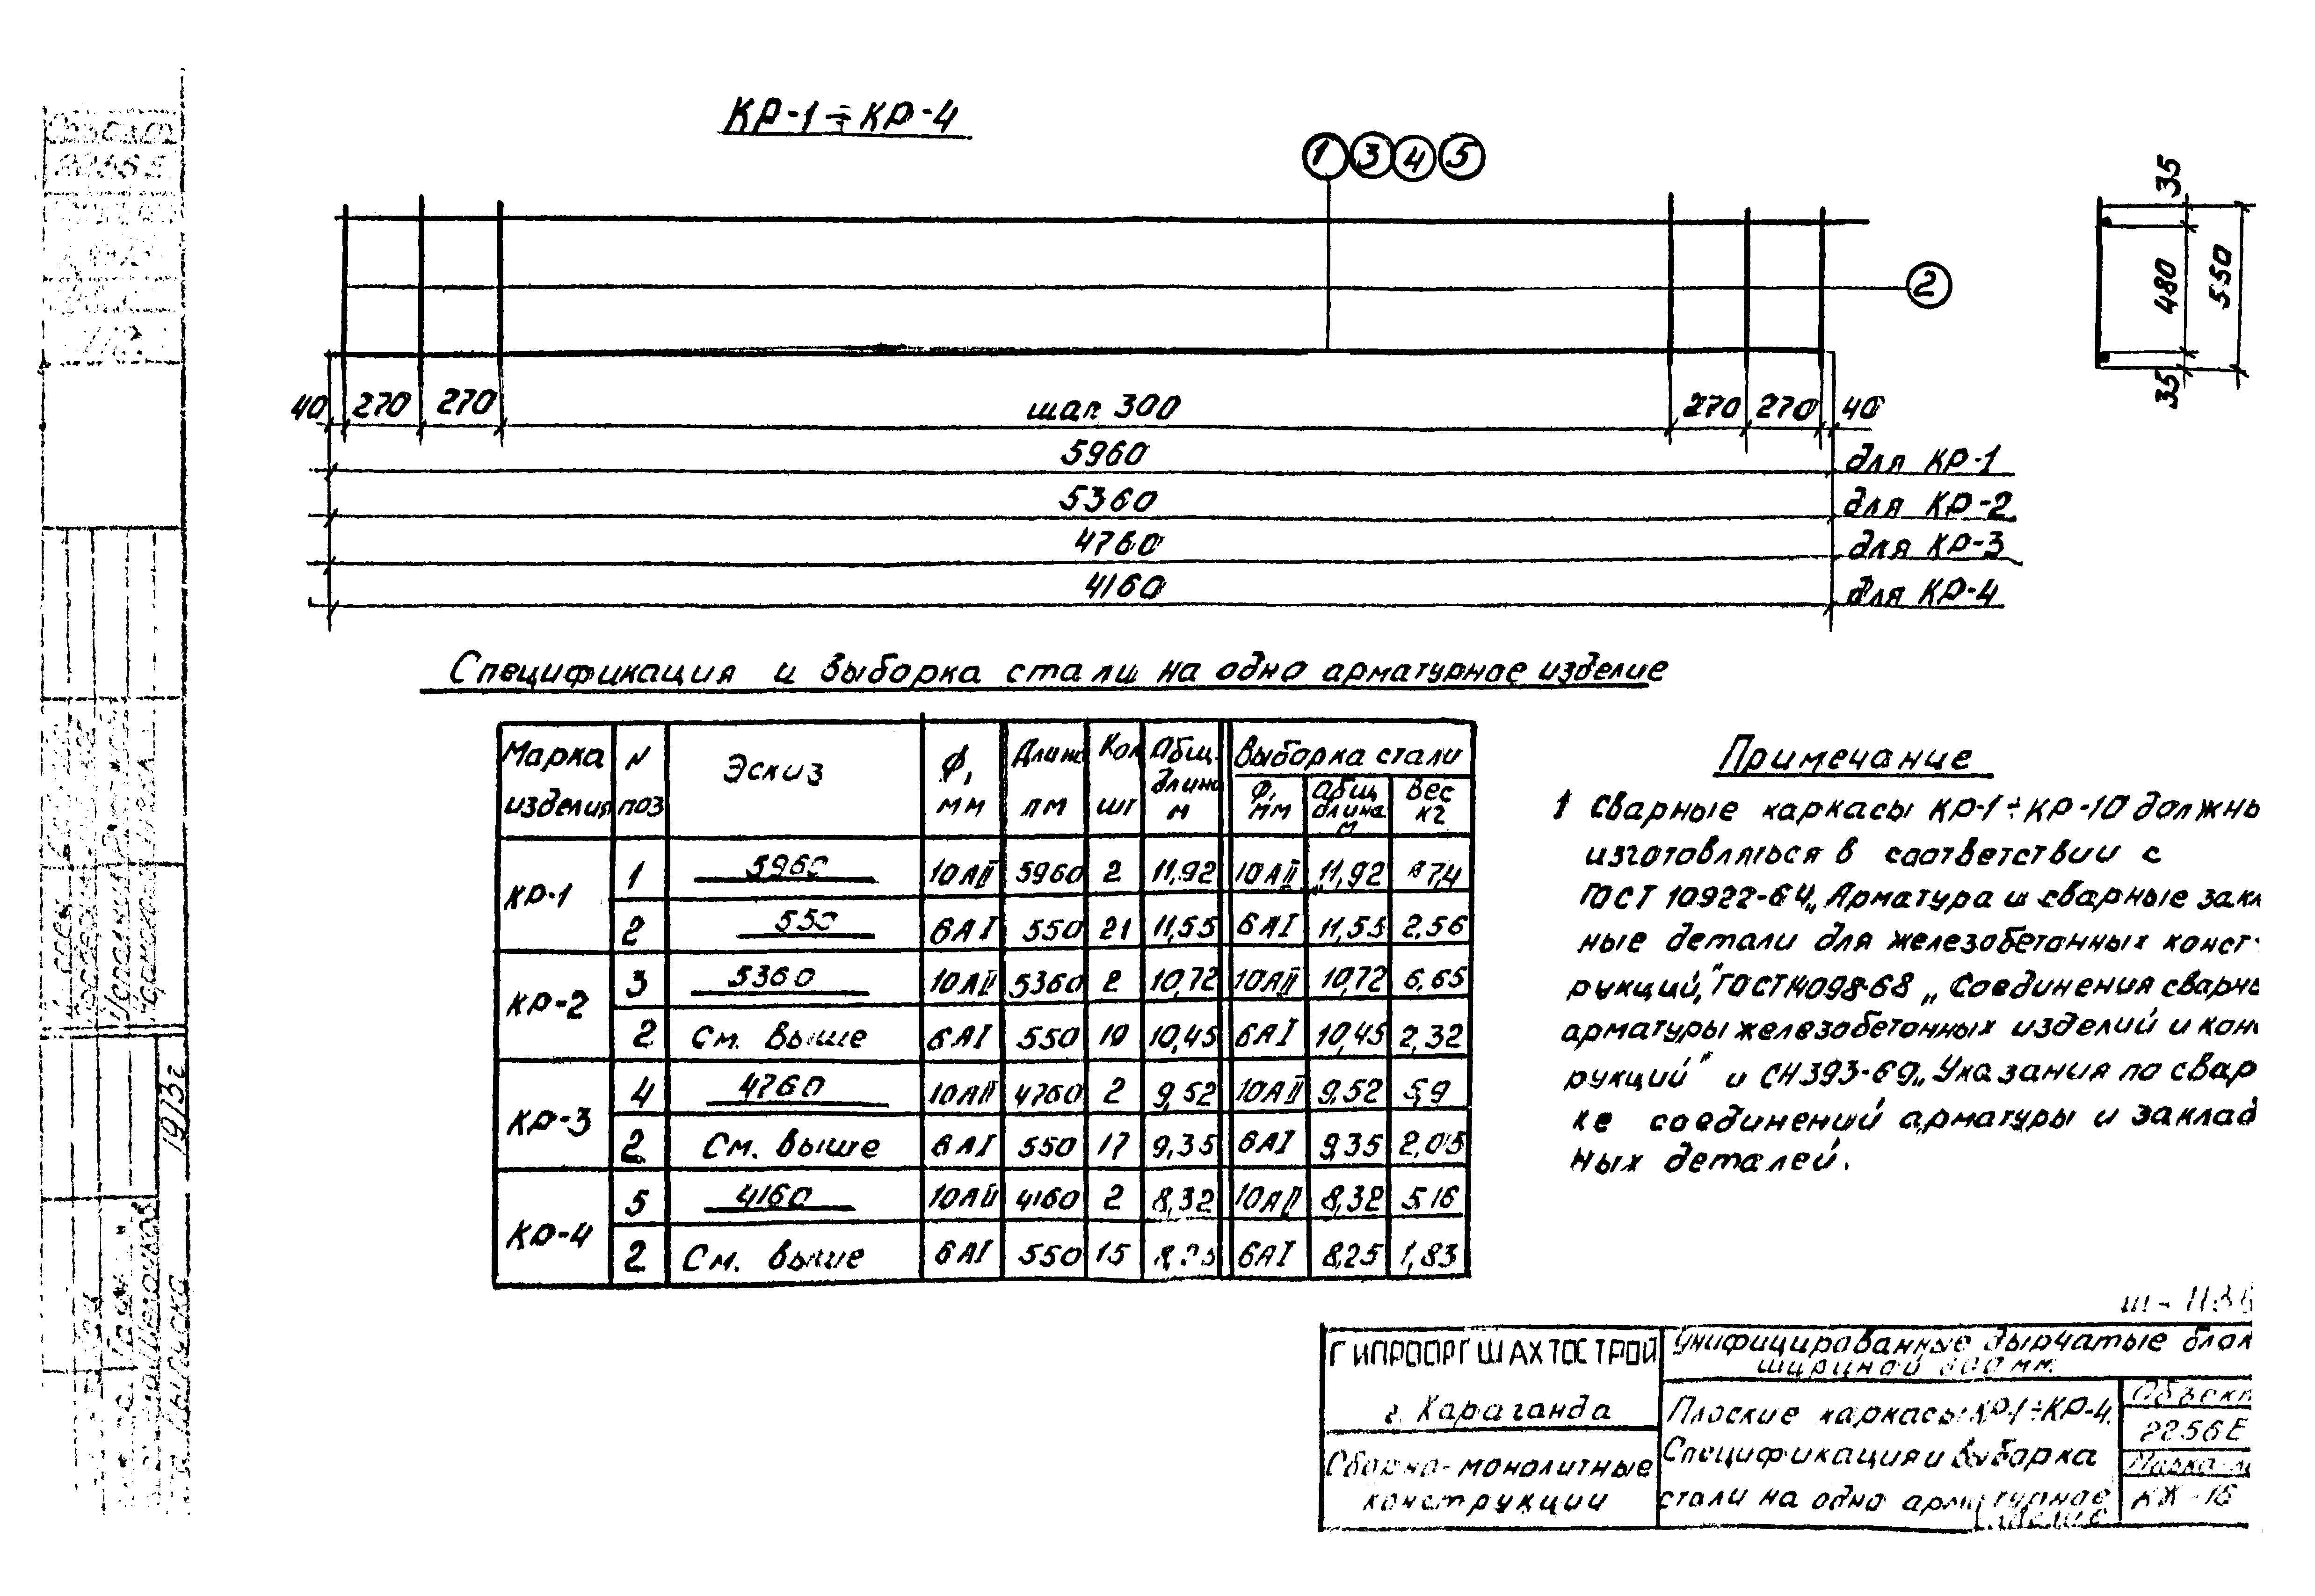 КР-1÷КР-4
1 3 4 5
35
480
550
35
2
40 270 270 шаг 300 270 270 40
5960 для КР-1
5360 для КР-2
4760 для КР-3
4160 для КР-4
Спецификация и выборка стали на одно арматурное изделие
Марка изделия N поз Эскиз Ф, мм Длина пм Кол шт Общ. длина м Выборка стали
Ф, мм Общ длина м Вес кг
КР-1 1 5960 10АII 5960 2 11,92 10АII 11,92 7,4
2 550 6АI 550 21 11,55 6АI 11,55 2,56
КР-2 3 5360 10АII 5360 2 10,72 10АII 10,72 6,65
2 См. выше 6АI 550 19 10,45 6АI 10,45 2,32
КР-3 4 4760 10АII 4760 2 9,52 10АII 9,52 5,9
2 См. выше 6АI 550 17 9,35 6АI 9,35 2,05
КР-4 5 4160 10АII 4160 2 8,32 10АII 8,32 5,16
2 См. выше 6АI 550 15 8,25 6АI 8,25 1,83
Примечание
1 Сварные каркасы КР-1÷КР-10 должны
изготовляться в соответствии с
ГОСТ 10922-64 „Арматура и сварные закл
ные детали для железобетонных конст-
рукций," ГОСТ 14098-68 „Соединения сварны
арматуры железобетонных изделий и конс
рукций" и СН 393-69 „Указания по свар
ке соединений арматуры и заклад
ных деталей.
ГИПРООРГШАХТОСТРОЙ
г. Караганда
Сборно-монолитные
конструкции
Унифицированные дырчатые блок
шириной мм.
Плоские каркасы КР-1÷КР-4.
Спецификация и выборка
стали на одно арматурное
изделие
Объект
2256Е
Марка-л
КЖ-16
1973г
выпуска